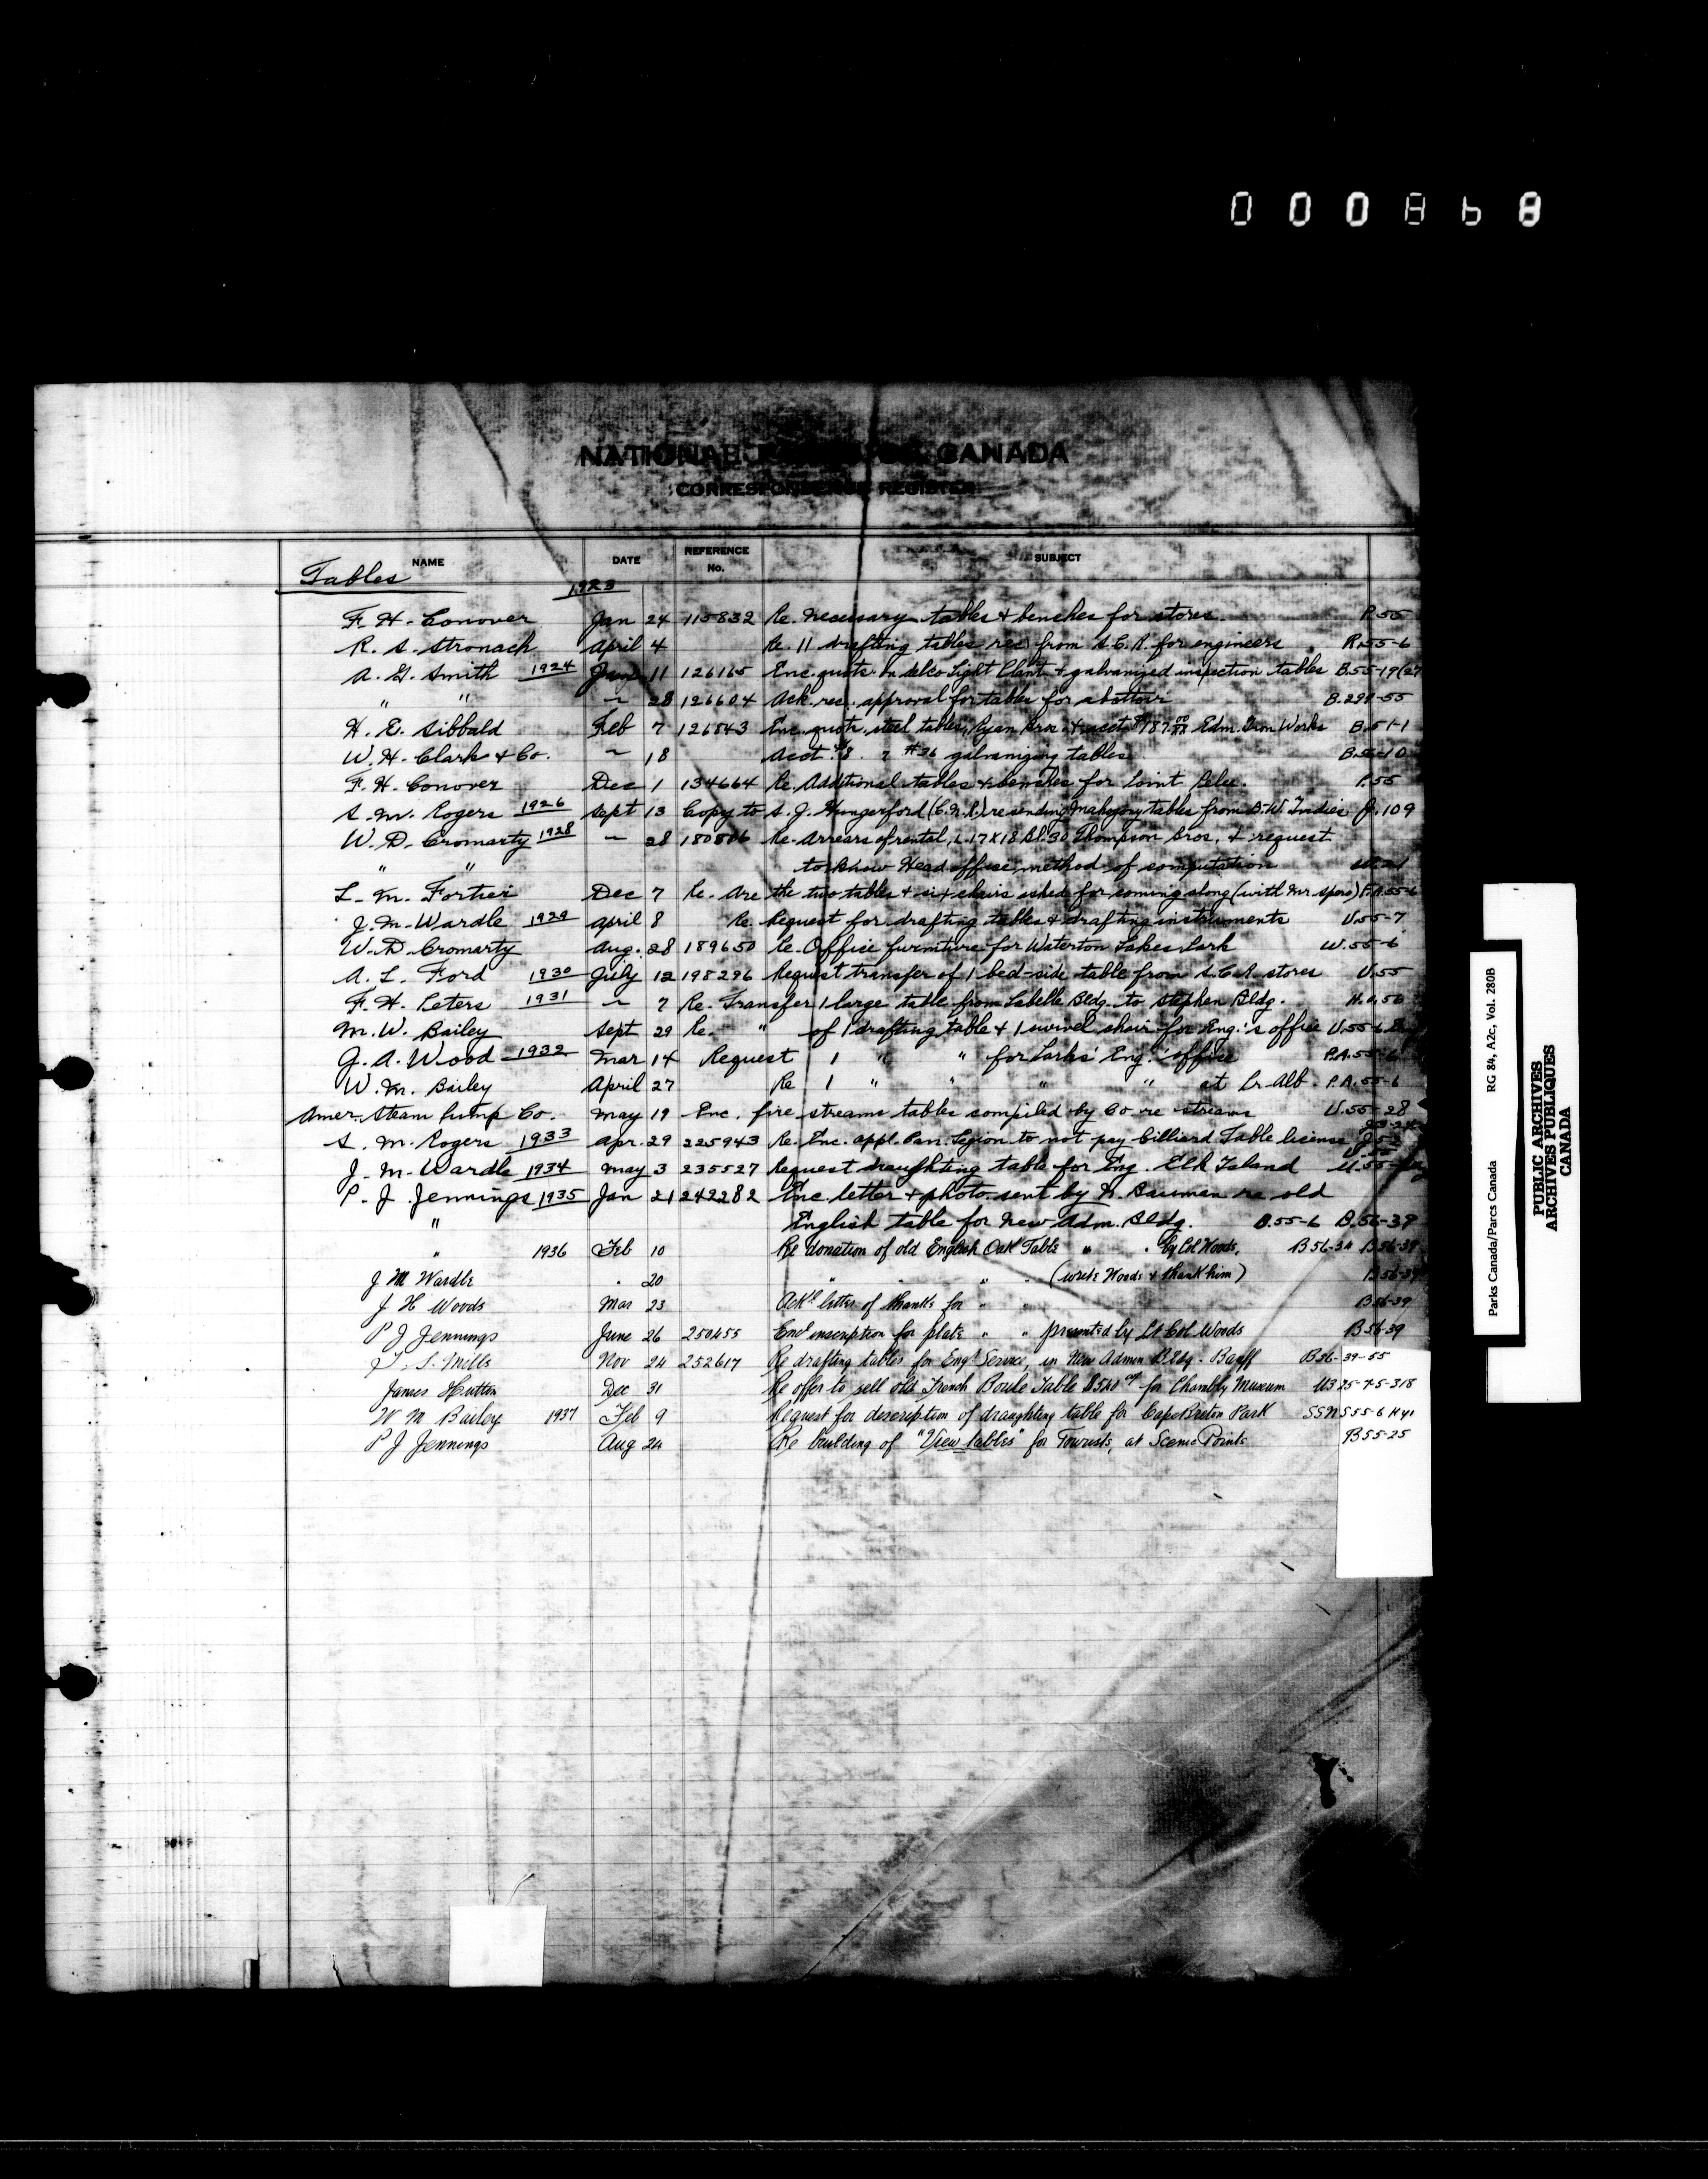 000868
NATIONAL PARKS OF CANADA
CORRESPONDENCE REGISTER
NAME DATE REFERENCE No. SUBJECT
Tables
1923
F. H. Conover Jan 24 115832 Re. necessary tables & benches for stores. P.55
R. S. Stronach April 4 Re. 11 drafting tables rec) from S.C.R. for engineers R.55-6
A. G. Smith 1924 11 126165 Enc. quots. on Delco Light Plant & galvanized inspection tables B.55-19
" " ~ 28 126604 Ack. rec. approval for tables for abattoir B.299-55
H. E. Sibbald Feb 7 126843 Enc. quots. steel tables, Ryan Bros. & acct $187.00 Edm. Iron Works B.51-1
W. H. Clark & Co. ~ 18 Acct. #36 galvanizing tables
F. H. Conover Dec 1 134664 Re. Additional tables & benches for Point Pelee. P.55
S. M. Rogers 1926 Sept 13 Copy to S. J. Hungerford (C.N.R.) re sending Mahogany tables from B.W. Indies. J.109
W. D. Cromarty 1928 ~ 28 180806 Re. Arrears of rental, L.17&18 Bl.30 Thompson Bros. & request
" " to know Head office method of computation
L. M. Fortier Dec 7 Re. Are the two tables & six chairs asked for coming along (with Mr. Spero) F.A.55-6
J. M. Wardle 1929 April 8 Re. Request for drafting tables & drafting instruments U.55-7
W. D Cromarty Aug. 28 189650 Re. Office furniture for Waterton Lakes Park W.55-6
A. L. Ford 1930 July 12 198296 Request transfer of 1 bed-side table from S.C.R. stores U.55
F. H. Peters 1931 ~ 7 Re. Transfer 1 large table from Labelle Bldg. to Stephen Bldg. H.O.56
M. W. Bailey Sept 29 Re. " of 1 drafting table & 1 swivel chair for Eng.'s office U.55-6
J. A. Wood 1932 Mar 14 Request 1 " " for Parks' Eng.' office P.A.55-6
W. M. Bailey April 27 Re 1 " " " " at Pr. Alb. P.A.55-6
Amer. Steam Pump Co. May 19 Enc. fire streams tables compiled by Co re streams U.55-28
S. M. Rogers 1933 Apr. 29 225943 Re. Enc. appl. Can. Legion to not pay Billiard Table license
J. M. Wardle 1934 May 3 235527 Request draughting table for Eng. Elk Island
P. J. Jennings 1935 Jan 21 242282 Enc. letter & photo sent by N. Bauman re old
" English table for New Adm. Bldg. B.55-6 B.56-39
" 1936 Feb 10 Re donation of old English Oak Table " " by Col Woods, B56-34 B56-39
J M Wardle " 20 " " " " (write Woods & thank him) B56-39
J H Woods Mar 23 Ack'g letter of thanks for " " B56-39
P J Jennings June 26 250455 Encl inscription for plate " " presented by Lt Col Woods B56-39
J. S. Mills Nov 24 252617 Re drafting tables for Eng'r Service, in New Admin Bldg. Banff B56-39-55
James Hutton Dec 31 Re offer to sell old French Boule Table $540 for Chambly Museum U325-7-5-318
W M Bailey 1937 Feb 9 Request for description of draughting table for Cape Breton Park
P J Jennings Aug 24 Re building of "View tables" for Tourists, at Scenic Points B55-25
Parks Canada/Parcs Canada RG 84, A2c, Vol. 280B
PUBLIC ARCHIVES
ARCHIVES PUBLIQUES
CANADA